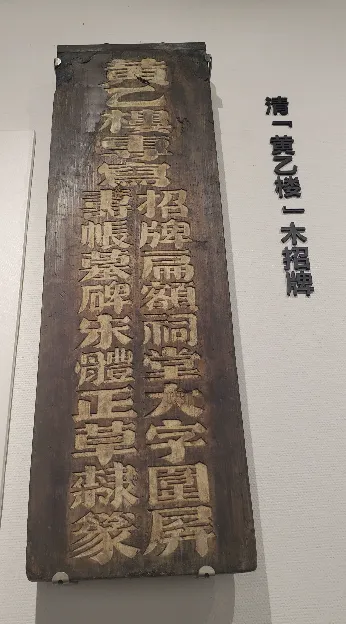 黄乙樓專寫
招牌扁額祠堂大字圍屏
壽帳墓碑宋體正草隸篆
清「黄乙楼」木招牌